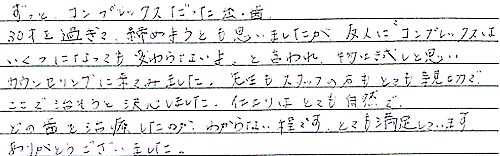 ずっと コンプレックスだった 虫歯。
30才を過ぎて、締めようとも思いましたが 友人に"コンプレックスは
いくつになっても変わらないよ、と言われ、物は試しと思い
カウンセリングに来てみました。先生もスタッフの方もとても親切で
ここで治そうと決心しました。仕上りはとても自然で、
どの歯を治療したのか、わからない程です。とても満足しています
ありがとうございました。